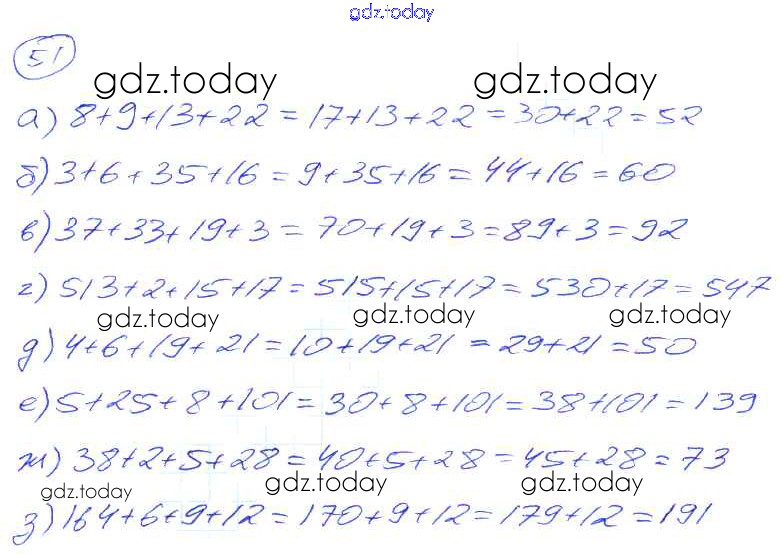 gdz.today
51
gdz.today gdz.today
а) 8+9+13+22=17+13+22=30+22=52
б) 3+6+35+16=9+35+16=44+16=60
в) 37+33+19+3=70+19+3=89+3=92
г) 513+2+15+17=515+15+17=530+17=547
gdz.today gdz.today gdz.today
д) 4+6+19+21=10+19+21=29+21=50
е) 5+25+8+101=30+8+101=38+101=139
ж) 38+2+5+28=40+5+28=45+28=73
gdz.today gdz.today gdz.today
з) 164+6+9+12=170+9+12=179+12=191